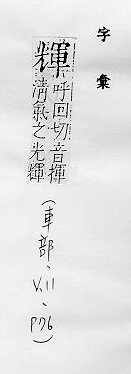 字彙
輝
呼回切音揮
清氣之光輝
(車部、V.11、P76)